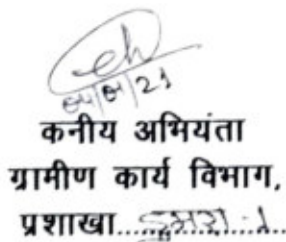 04/01/21
कनीय अभियंता
ग्रामीण कार्य विभाग,
प्रशाखा.....डुमरा-1